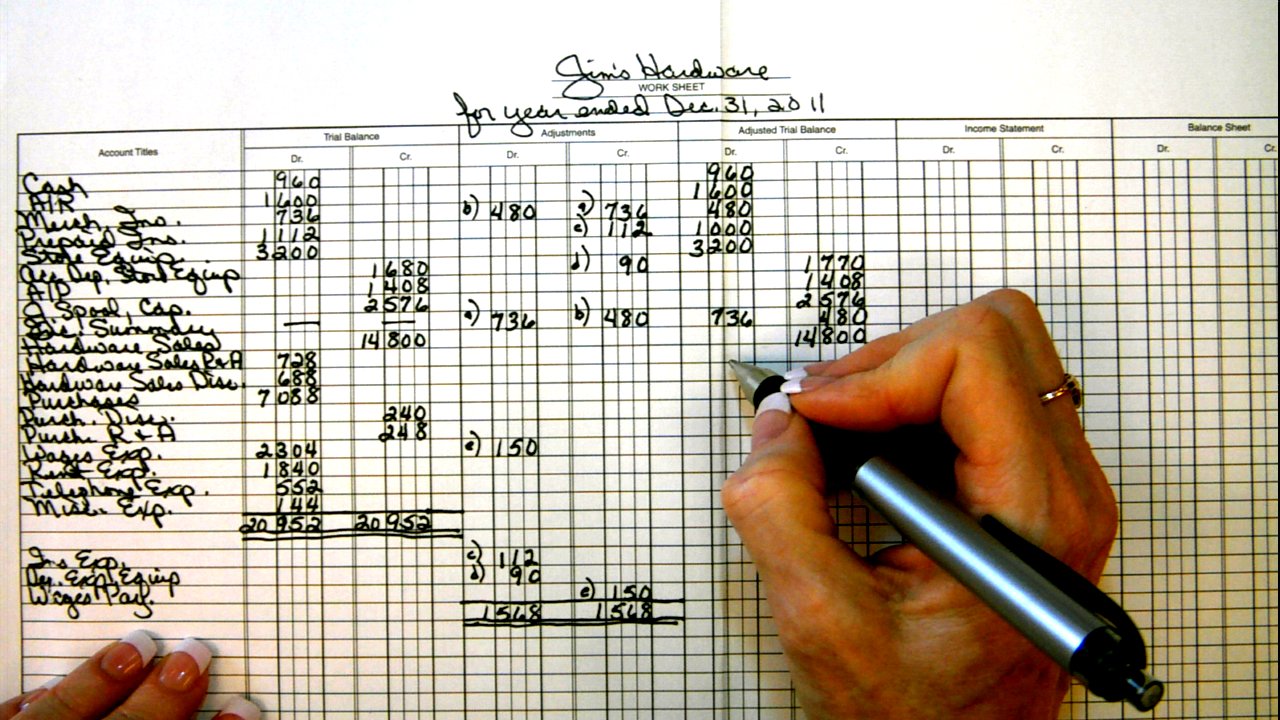 Jim's Hardware
WORK SHEET
for year ended Dec. 31, 2011
Account Titles Trial Balance Adjustments Adjusted Trial Balance Income Statement Balance Sheet
Dr. Cr. Dr. Cr. Dr. Cr. Dr. Cr. Dr. Cr.
Cash 960 960
A/R 1600 1600
Merch. Inv. 736 b) 480 a) 736 480
Prepaid Ins. 1112 c) 112 1000
Store Equip. 3200 3200
Acc. Dep. Store Equip 1680 d) 90 1770
A/P 1408 1408
Spool, Cap. 2576 2576
Summary — — a) 736 b) 480 736 480
Hardware Sales 14800 14800
Hardware Sales R+A 728
Hardware Sales Disc. 688
Purchases 7088
Purch. Disc. 240
Purch. R + A 248
Wages Exp. 2304 e) 150
Rent Exp. 1840
Telephone Exp. 552
Misc. Exp. 144
20952 20952
Ins. Exp. c) 112
Dep. Exp. Equip d) 90
Wages Pay. e) 150
1568 1568